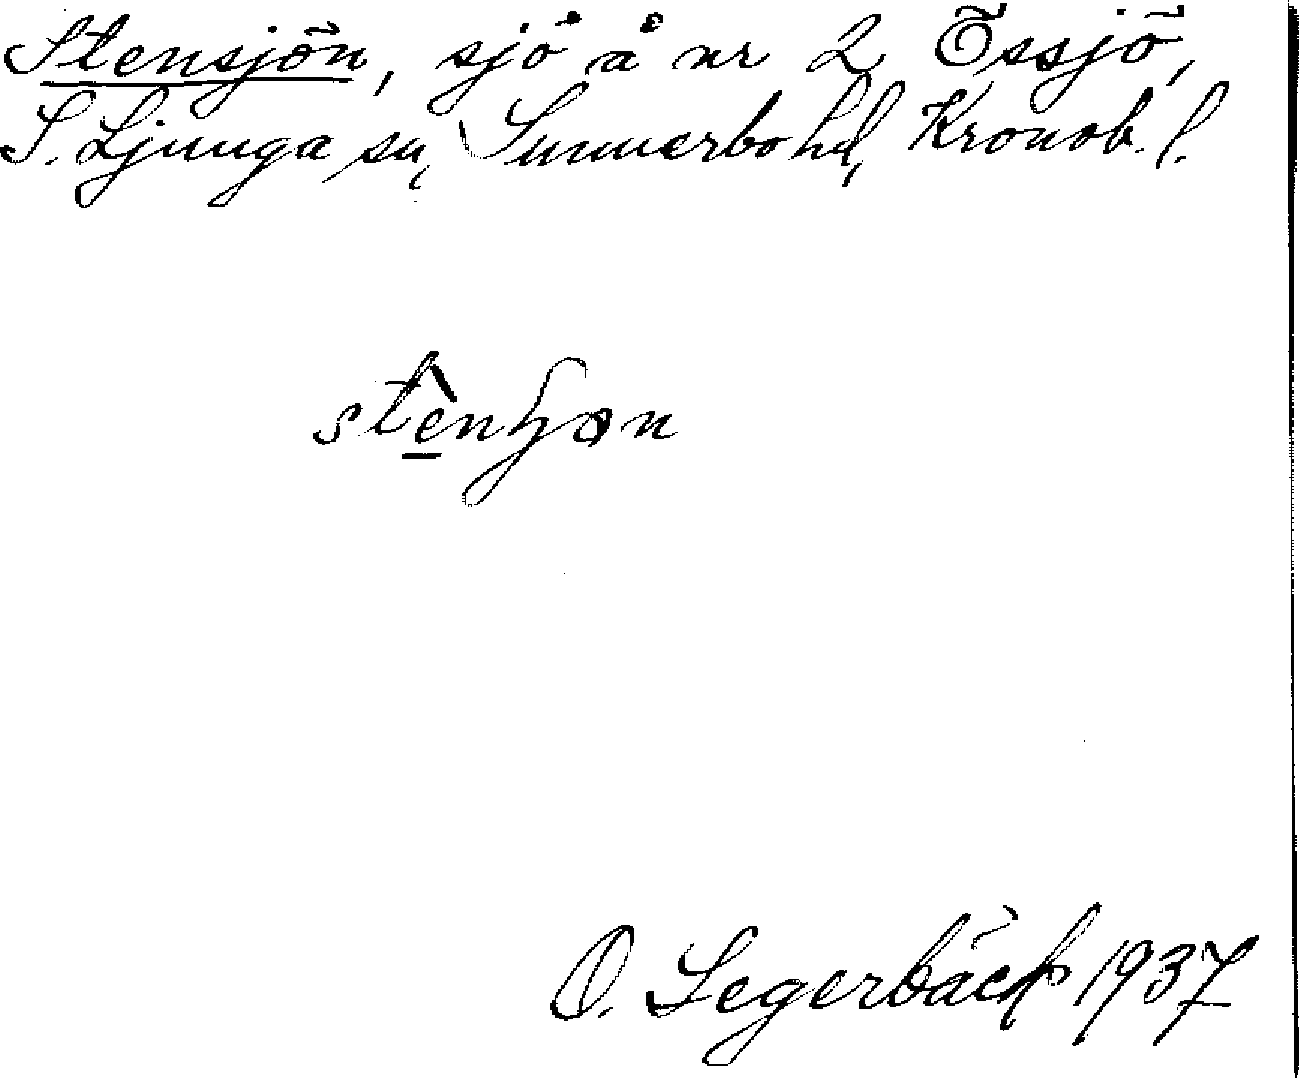 Stensjön, sjö å nr 2 Össjö,
S. Ljunga sn, Sunnerbo hd, Kronob. l.
O. Segerbäck 1937